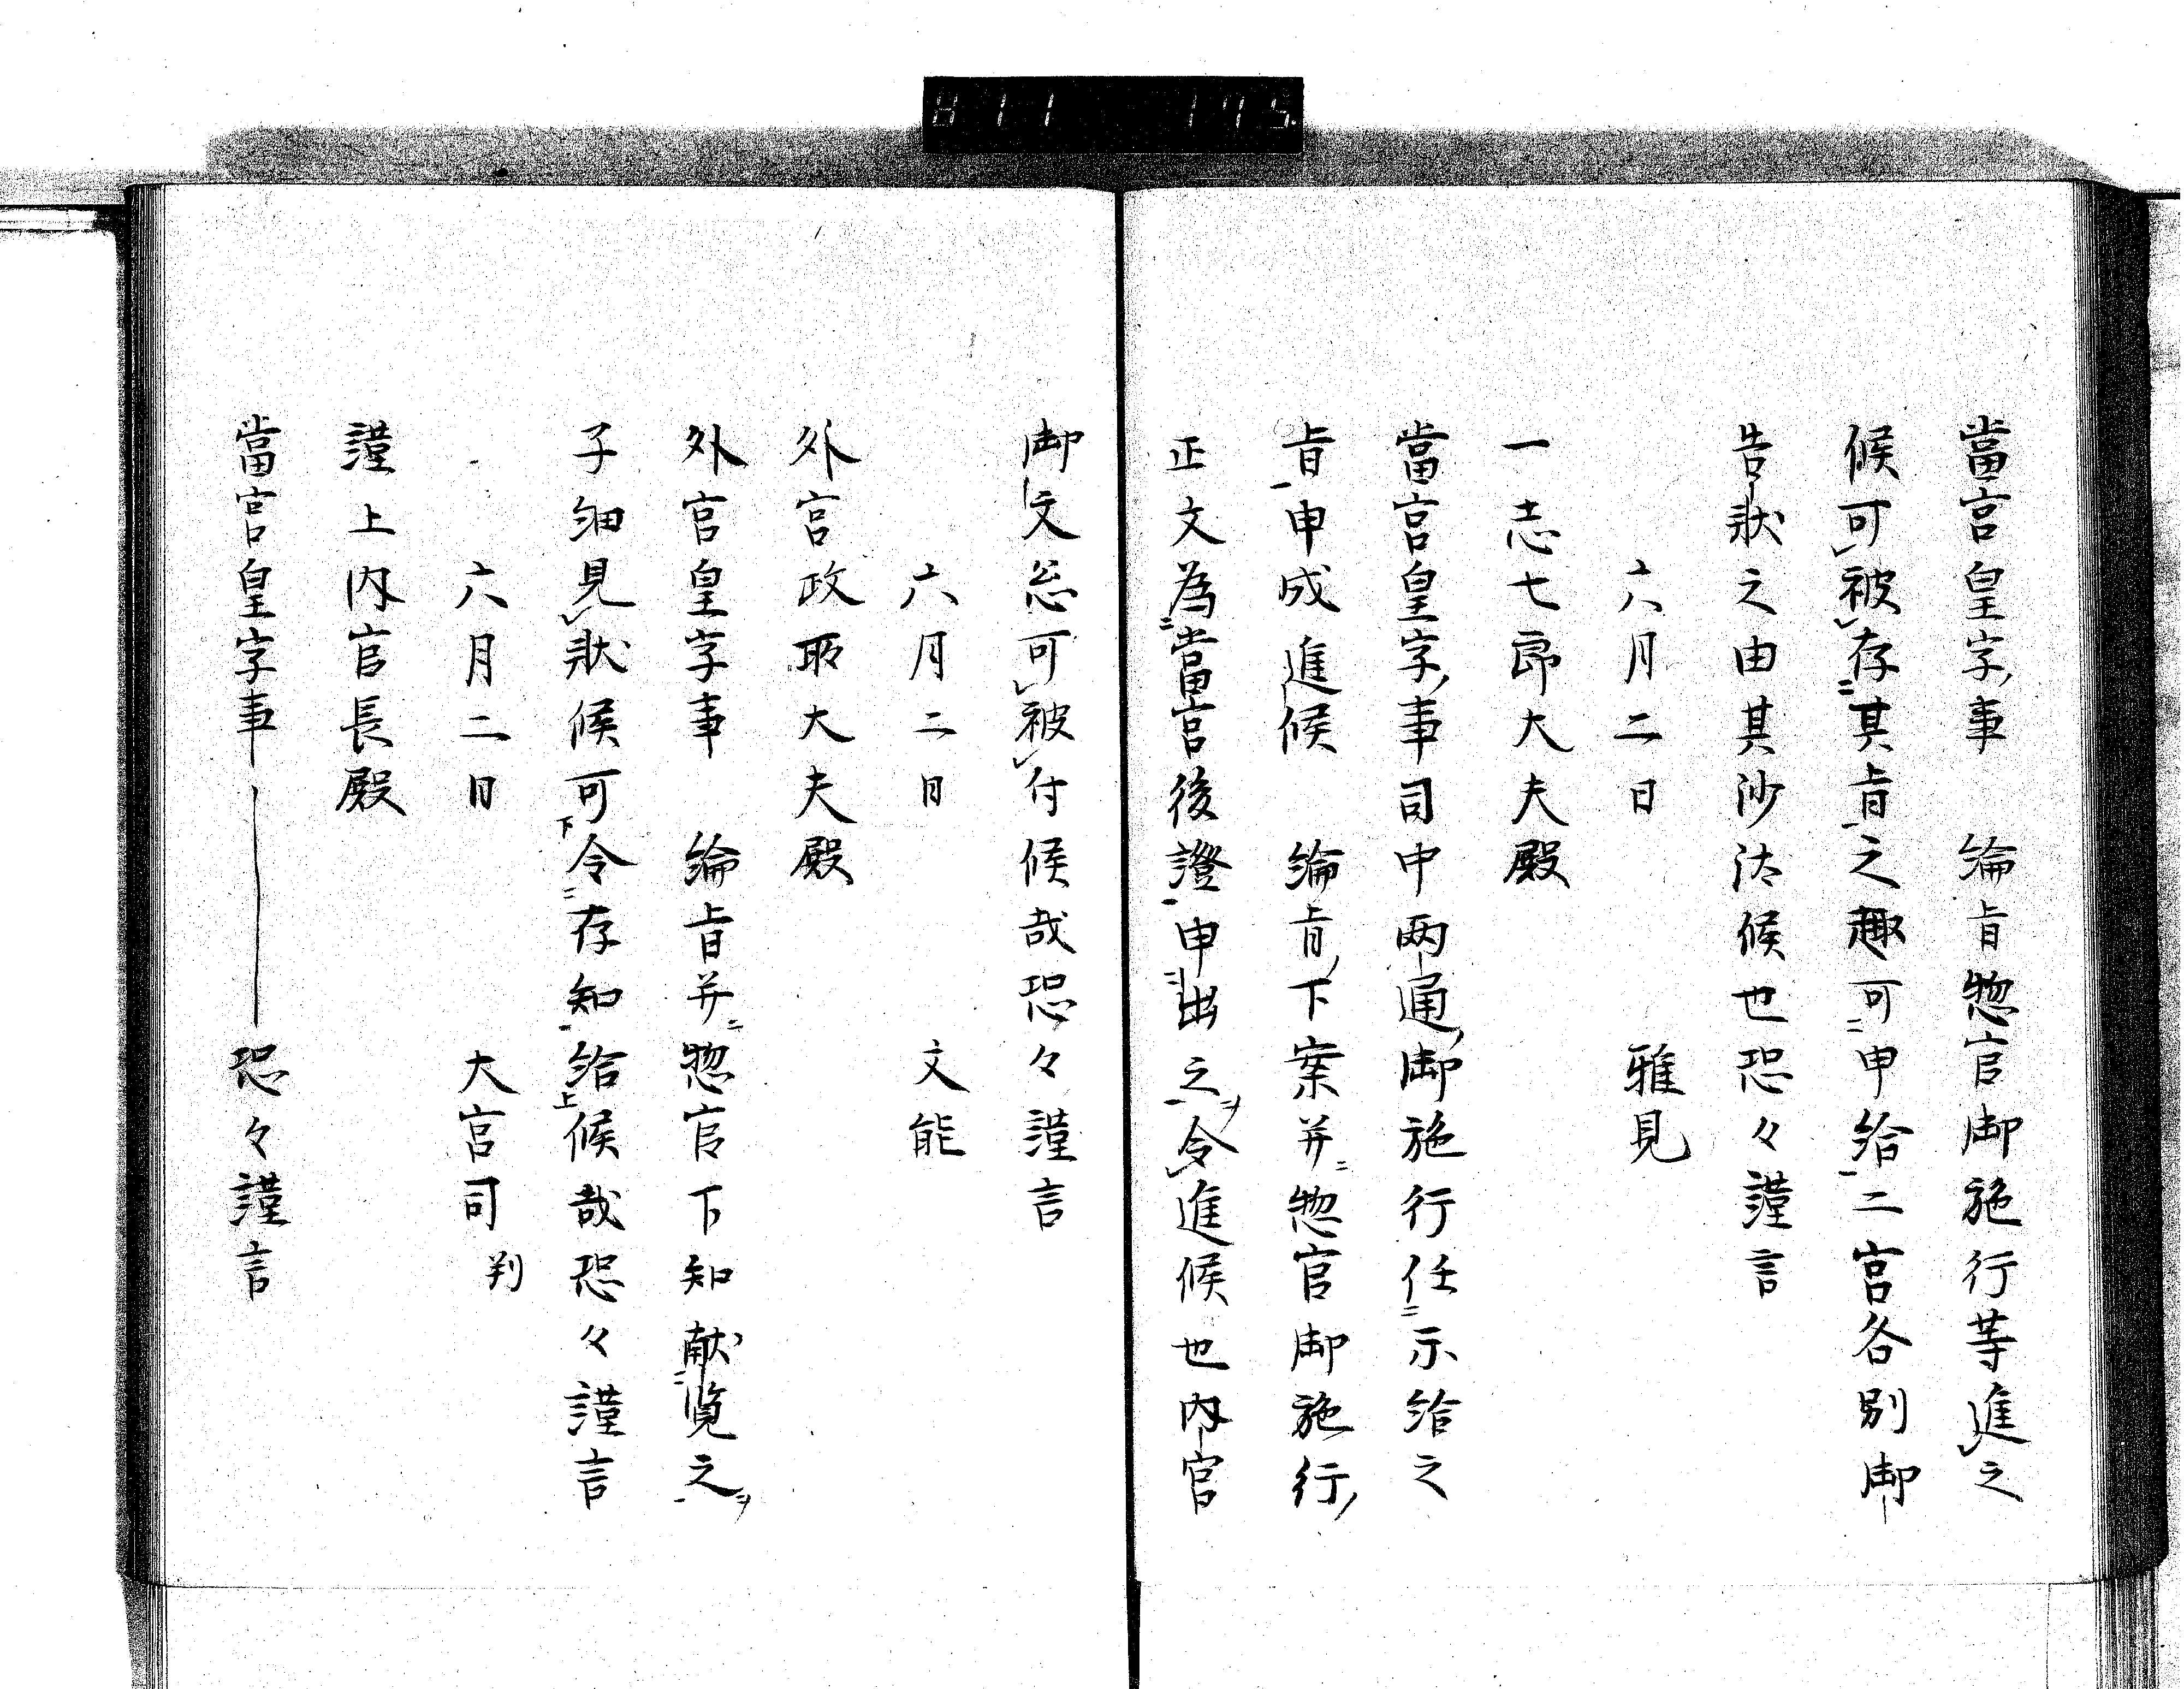 811 175
當宮皇字事　綸旨惣官御施行等進之
候可被存其旨之趣可申給二宮各別御
告狀之由其沙汰候也恐々謹言
六月二日　雅見
一志七郎大夫殿
當宮皇字事司中両通御施行任示給之
旨申成進候　綸旨下案并惣官御施行
正文為當宮後證申出之令進候也内宮
御文忩可被付候哉恐々謹言
六月二日　文能
外宮政所大夫殿
外宮皇字事　綸旨并惣官下知献覧之
子細見狀候可令存知給候哉恐々謹言
六月二日　大宮司判
謹上内宮長殿
當宮皇字事――恐々謹言